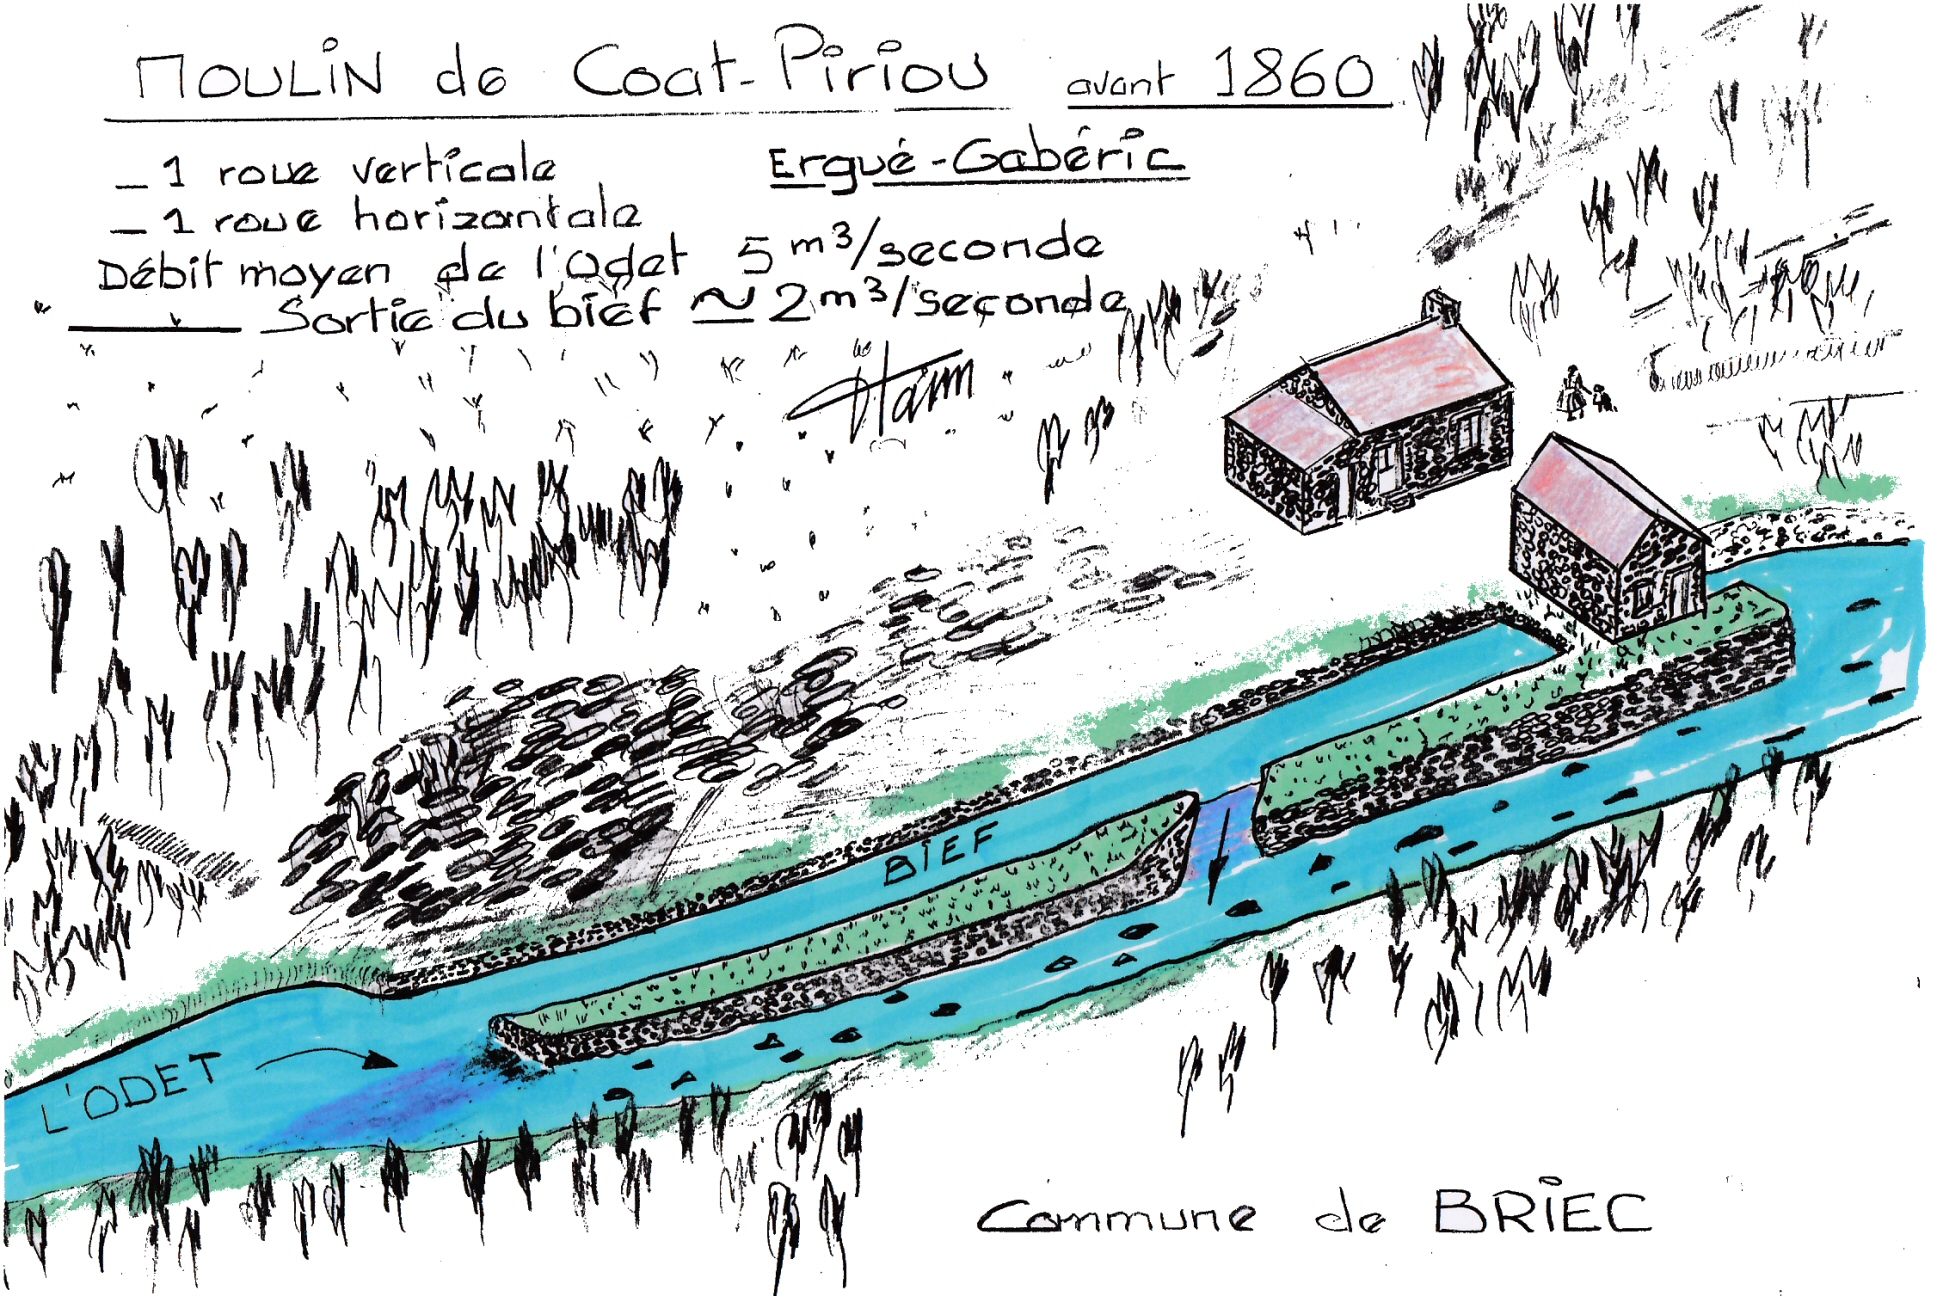 MOULIN de Coat-Piriou avant 1860
_ 1 roue verticale
Ergué-Gabéric
_ 1 roue horizontale
Débit moyen de l'Odet 5 m³/seconde
Sortie du bief ≃ 2 m³/seconde
BIEF
L'ODET
Commune de BRIEC